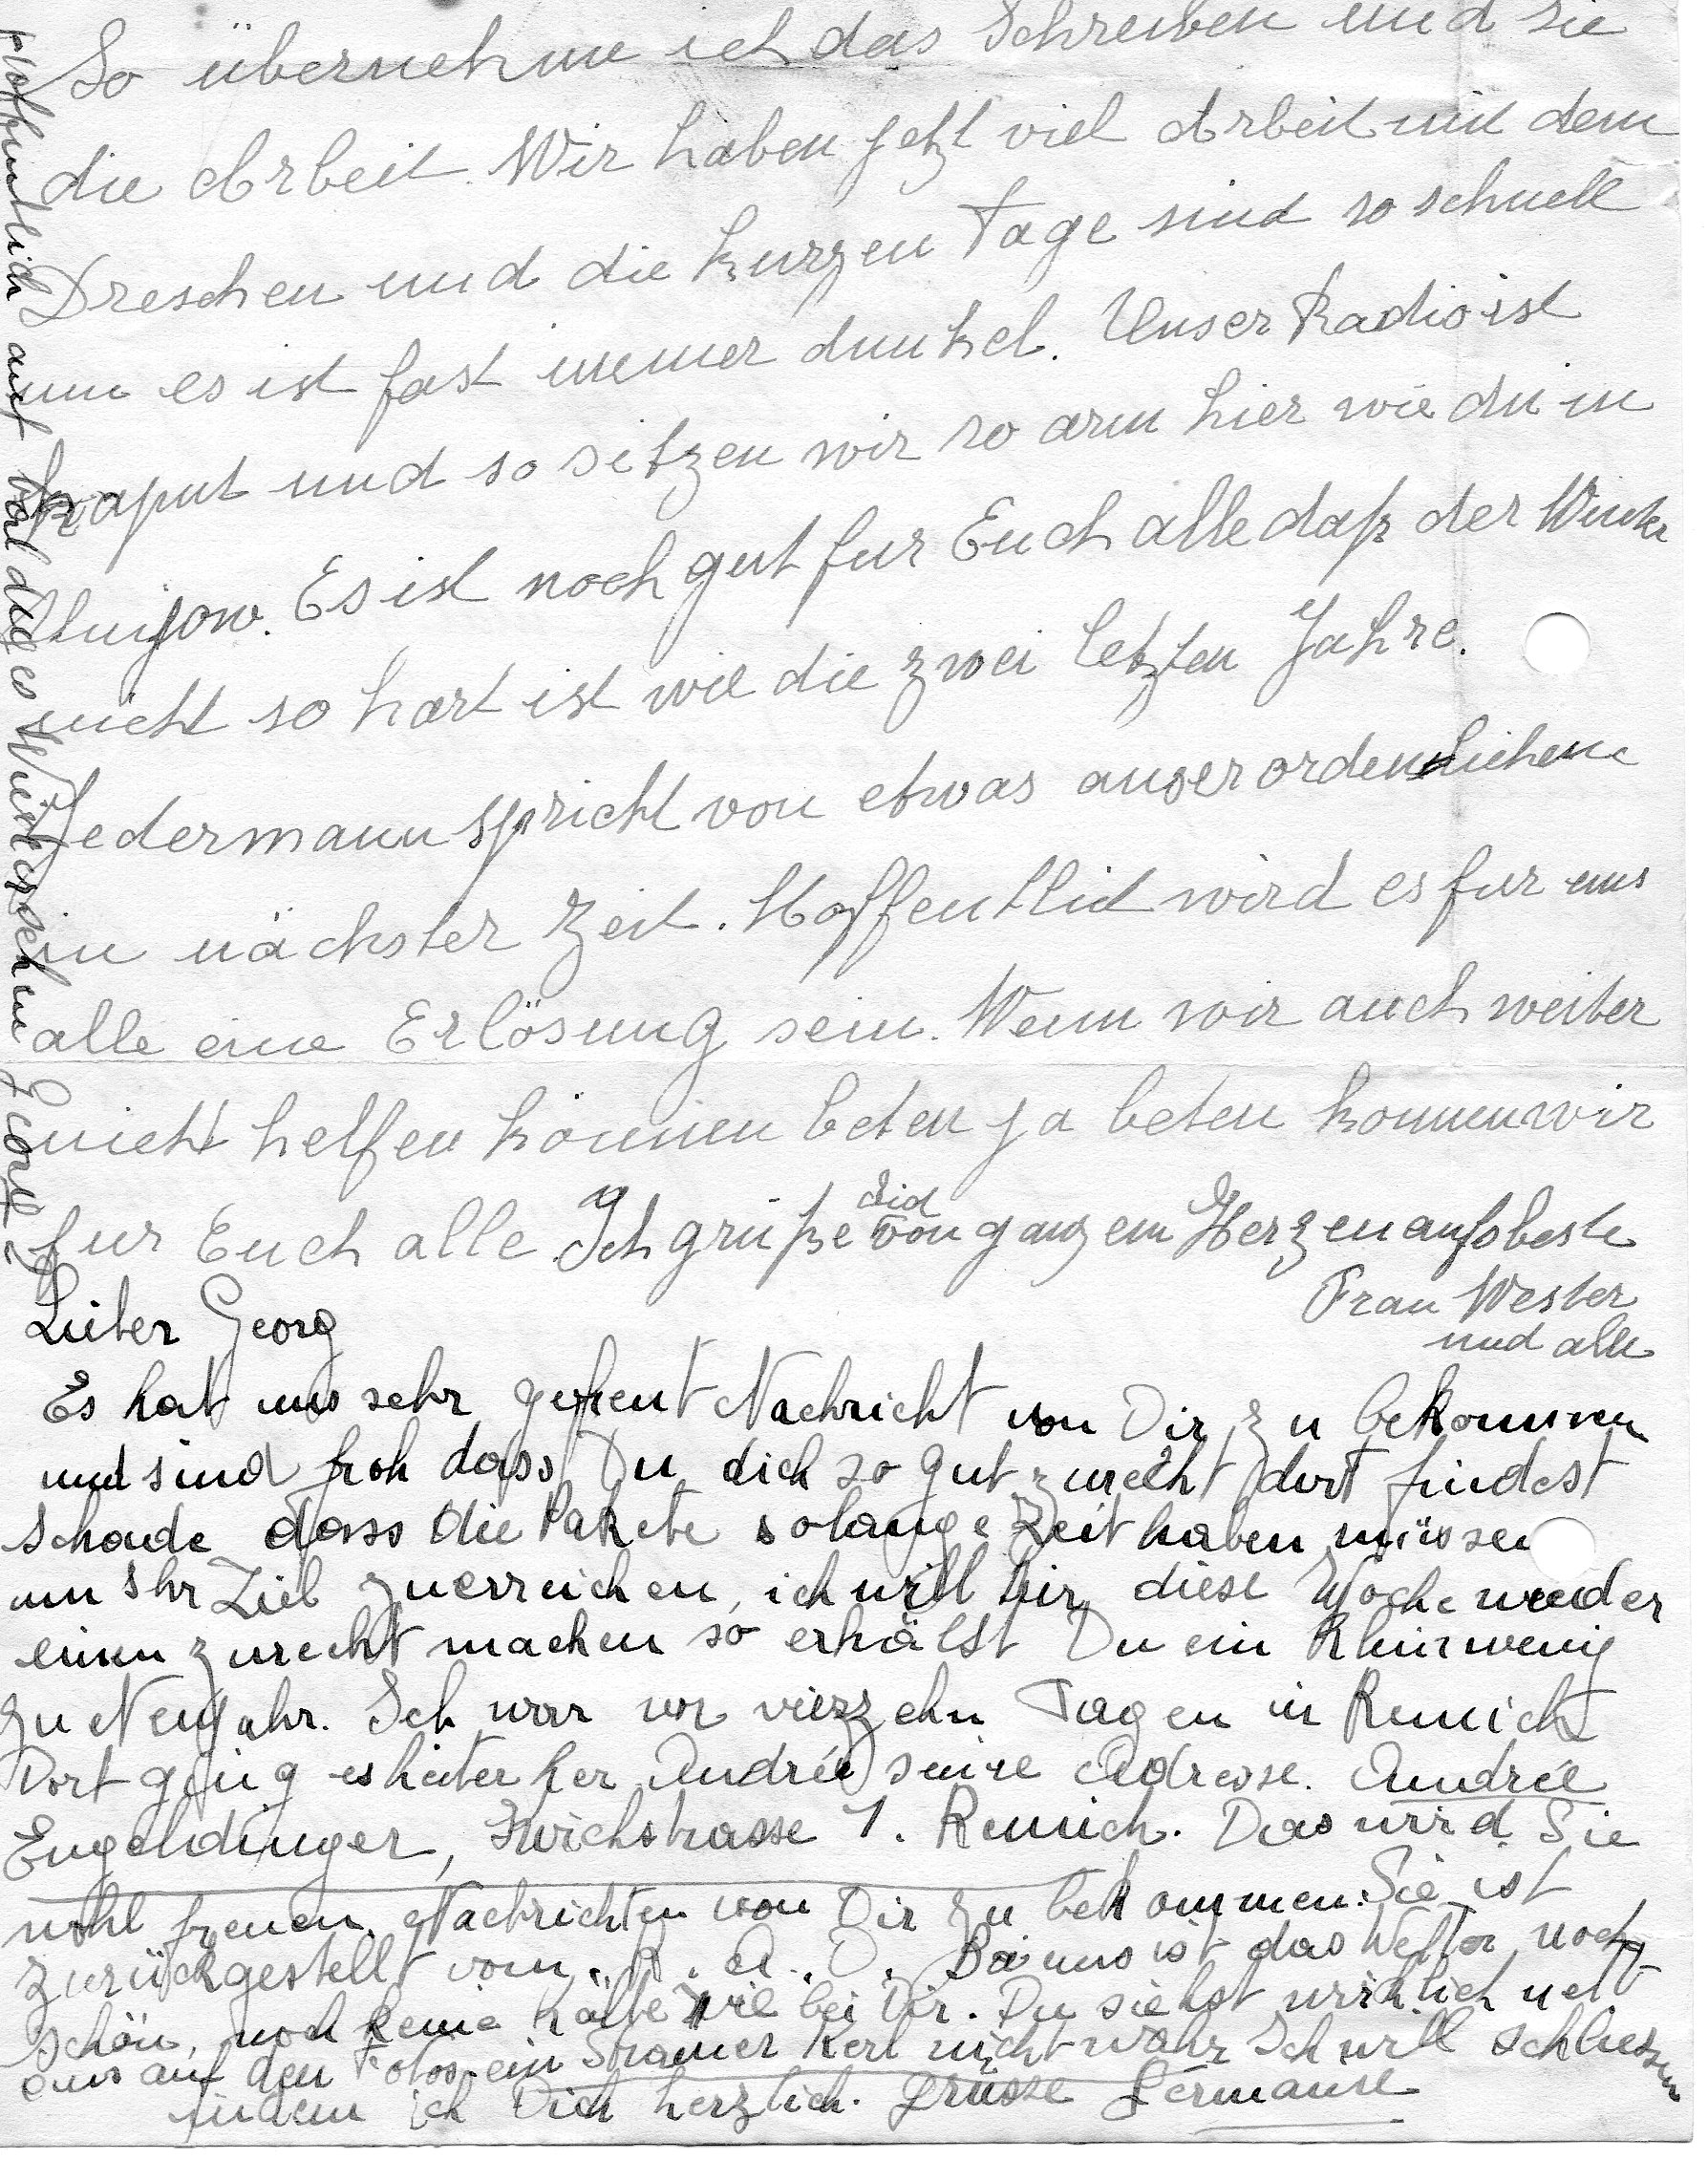 So übernehme ich das Schreiben und sie
die Arbeit. Wir haben jetzt viel Arbeit mit dem
Dreschen und die kurzen Tage sind so schnell
um es ist fast immer dunkel. Unser Radio ist
kaput und so sitzen wir so arm hier wie du in
Es ist noch gut fur Euch alle daß der Winter
nicht so hart ist wie die zwei letzten Jahre.
Jedermann spricht von etwas auserordentlichem
in nächster Zeit. Hoffentlich wird es fur uns
alle eine Erlösung sein. Wenn wir auch weiter
nicht helfen können beten ja beten konnen wir
fur Euch alle. Ich grüße dich von ganzem Herzen aufs beste
Frau Wester
und alle
Lieber Georg
Es hat uns sehr gefreut Nachricht von Dir zu bekommen
und sind froh dass Du dich so gut zurecht dort findest
schade dass die Pakete solange Zeit haben müssen
um Ihr Ziel zuerreichen, ich will Dir diese Woche wieder
einen zurecht machen so erhälst Du ein klein wenig
zu Neujahr. Ich war vor vierzehn Tagen in Remich
Dort ging es heiter her Andrée seine Adresse. Andrée
Engeldinger, Remich. Das wird Sie
wohl freuen Nachrichten von Dir zu bekommen. Sie ist
zurückgestellt vom R. A. D. Bei uns ist das Wetter noch
schön, noch keine Kälte wie bei Dir. Du siehst wirklich nett
aus auf den Fotos ein Stramer Kerl nicht wahr Ich will schliessen
indem ich Dich herzlich. grüsse Germaine
Hoffentlich auf baldiges Wiedersehen